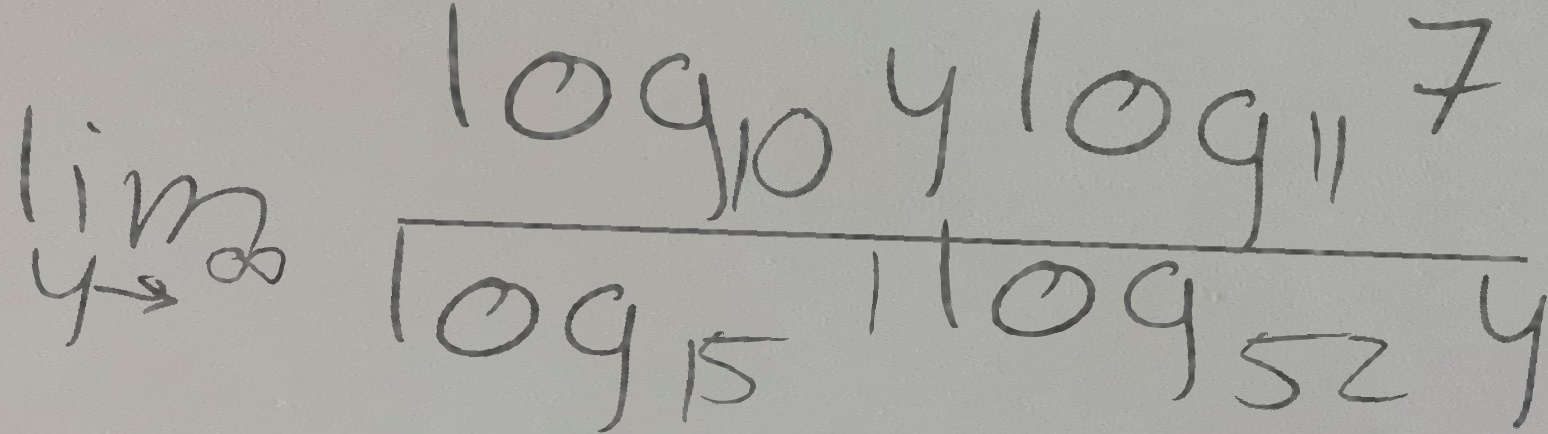 \lim_{y \to \infty} \frac{\log_{10} y \log_{11} 7}{\log_{15} 1 \log_{52} y}